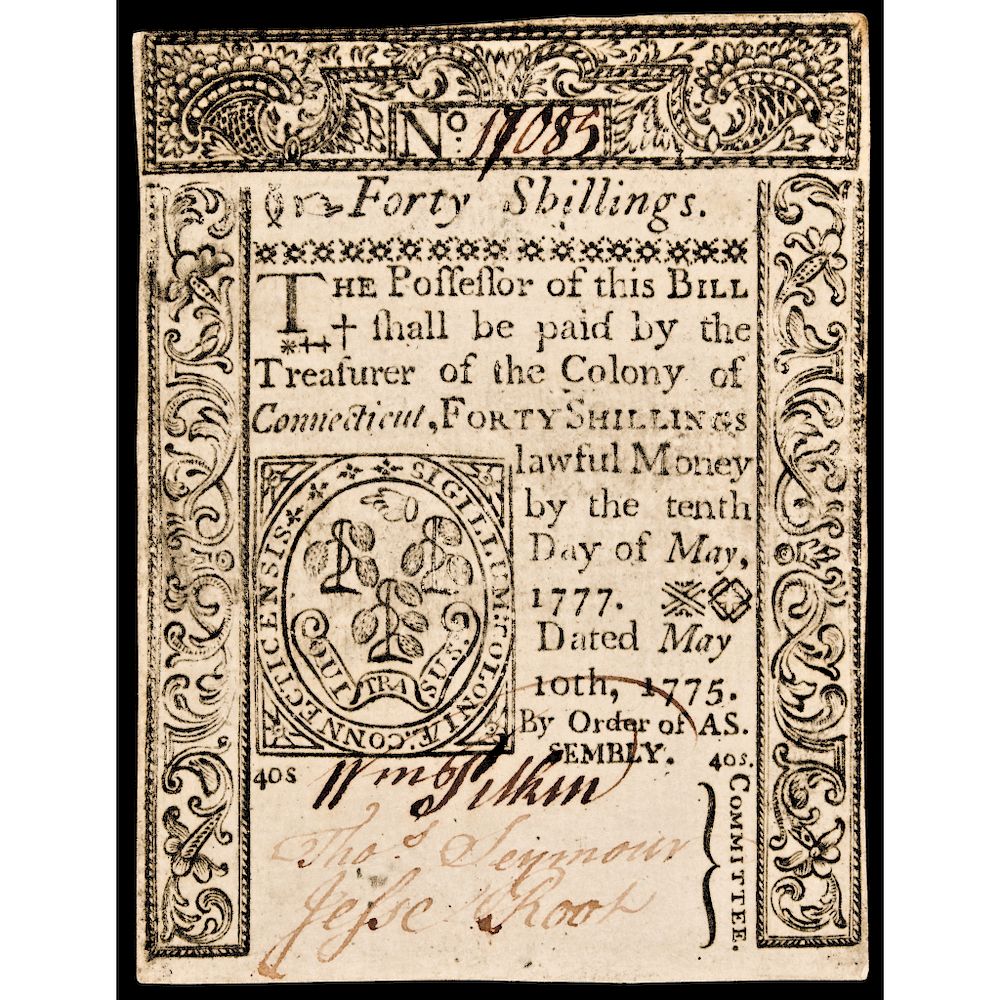 No. 17085
Forty Shillings.
THE Poſſeſſor of this BILL
ſhall be paid by the
Treaſurer of the Colony of
Connecticut, FORTY SHILLINGS
lawful Money
by the tenth
Day of May,
1777.
Dated May
10th, 1775.
By Order of AS-
SEMBLY.
SIGILLUM: COLONIÆ: CONNECTICENSIS
QUI TRA SUS.
40s
40s.
Wm Pitkin
Thos. Seymour
Jeſse Root
COMMITTEE.